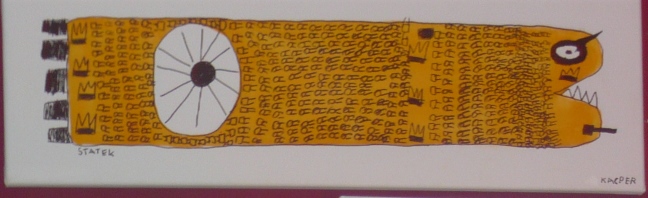 STATEK
KACPER